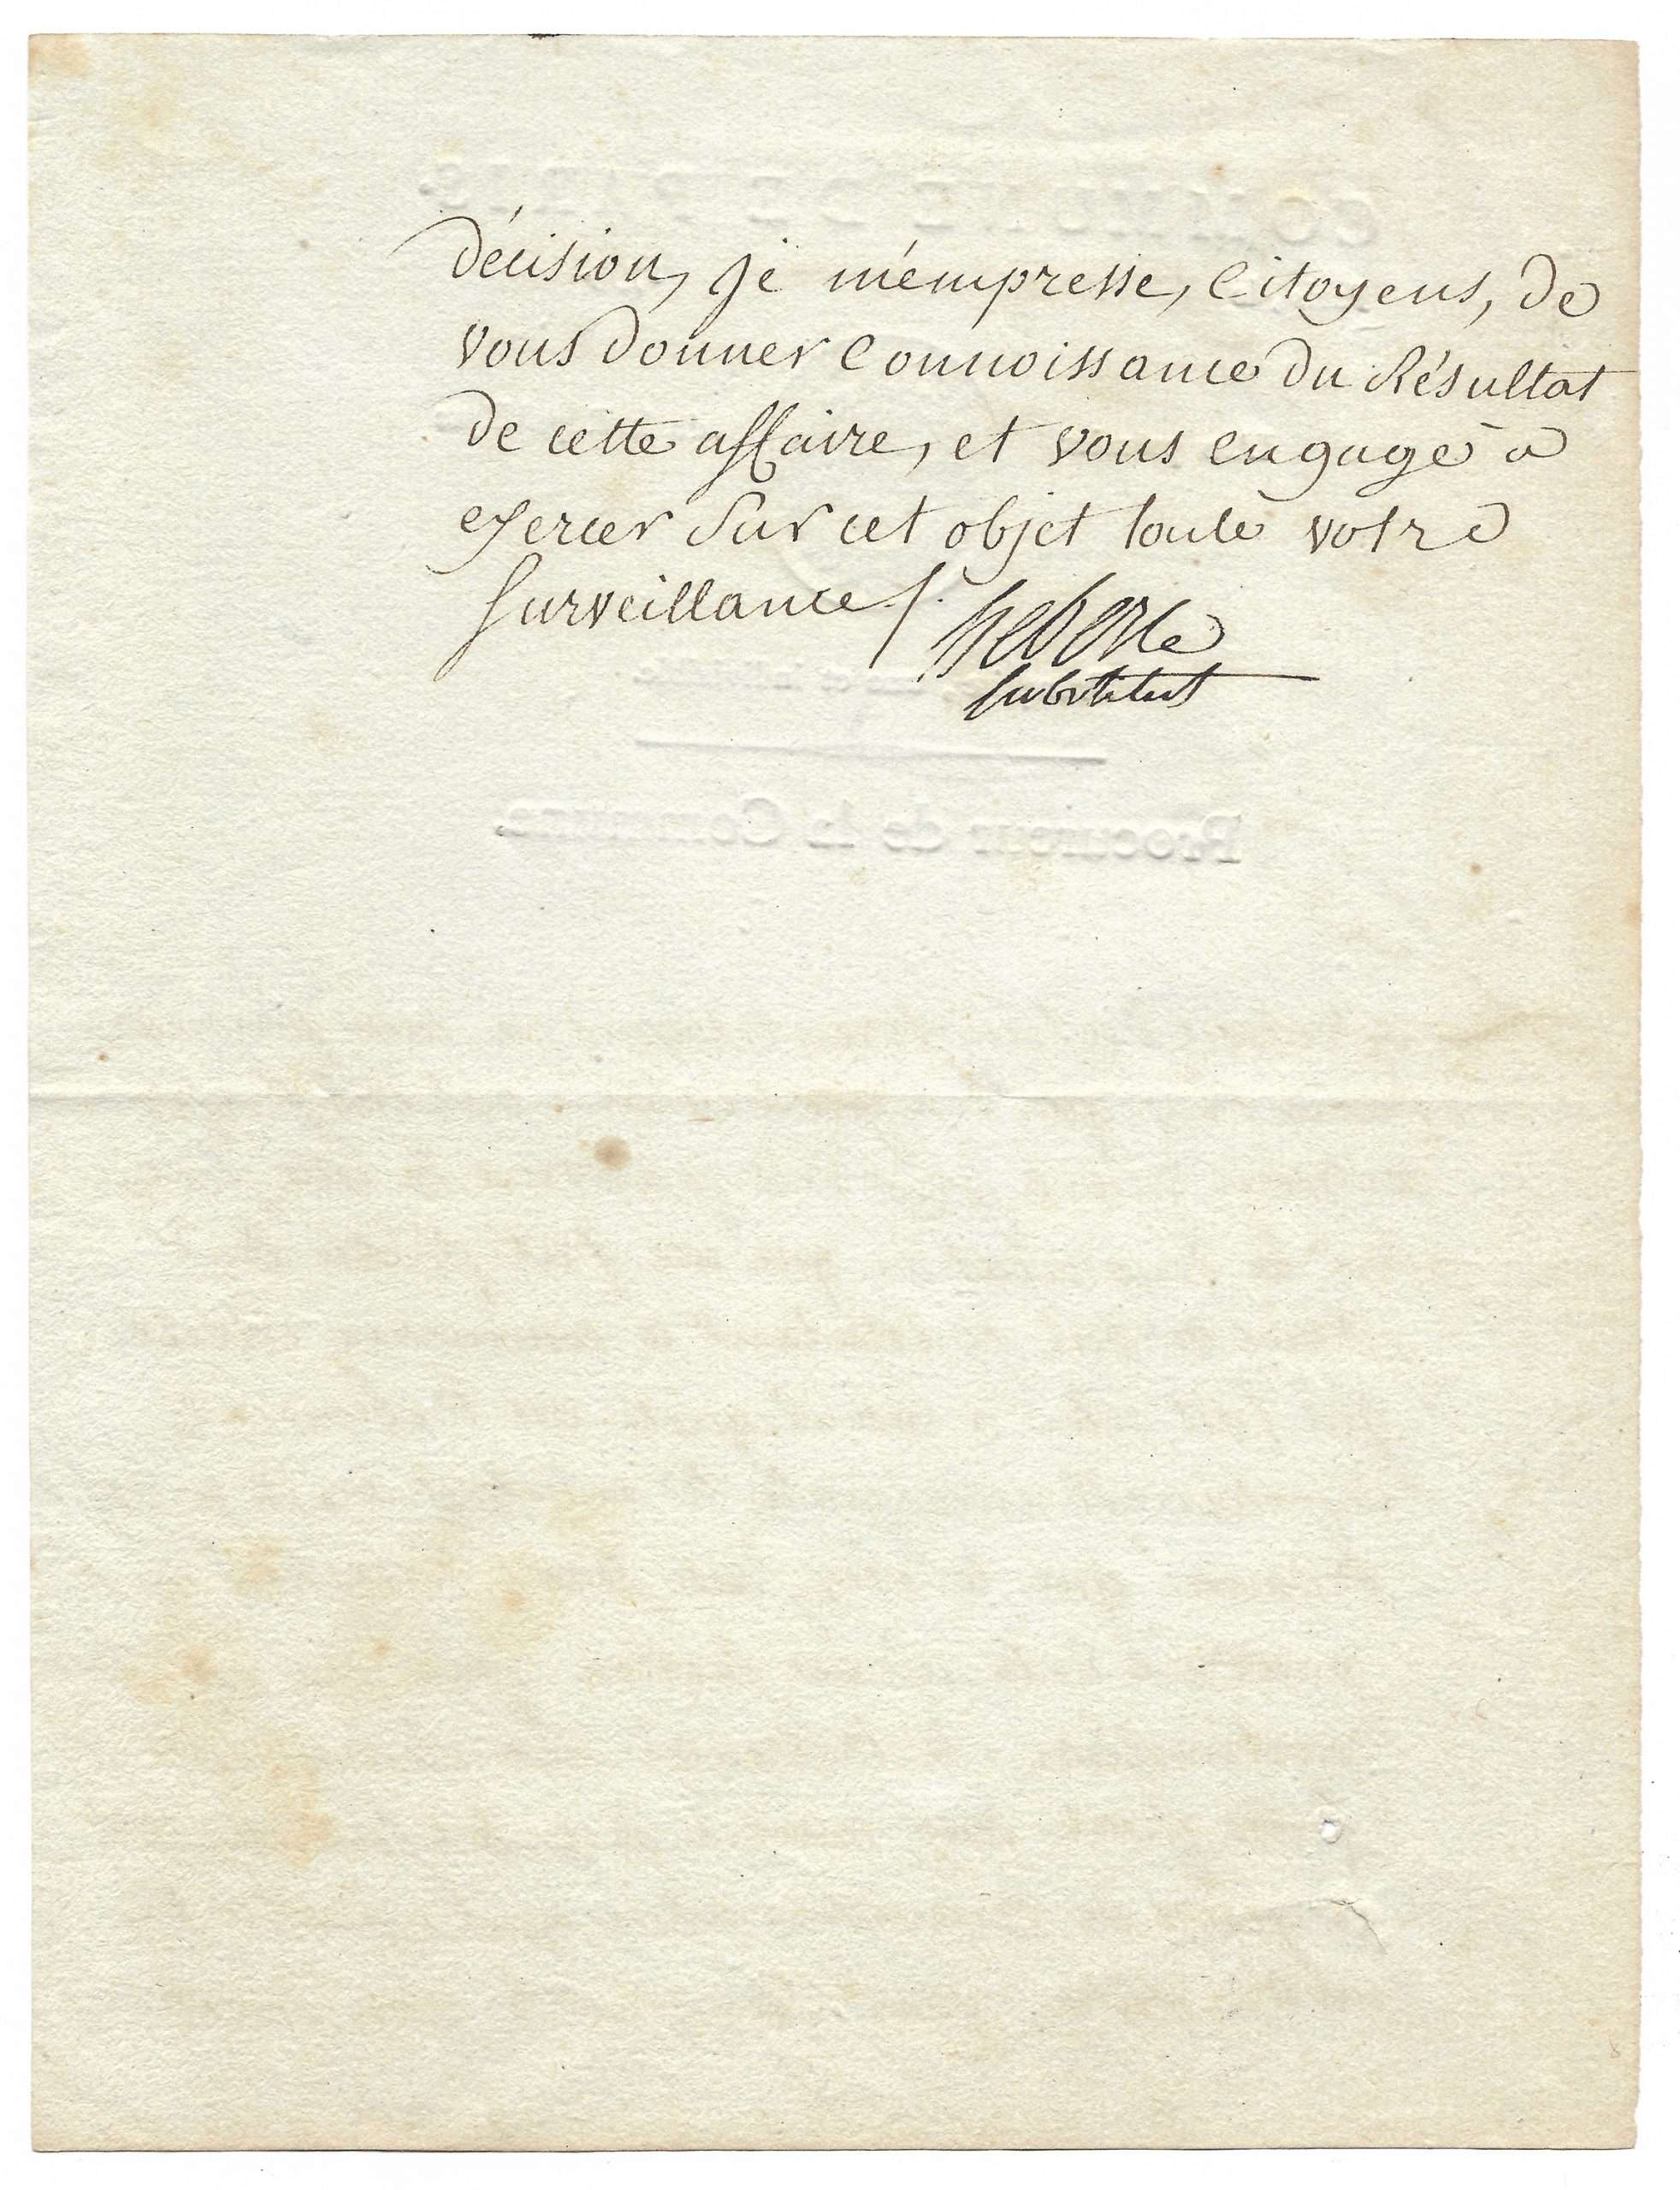 COMMUNE DE PARIS.
décision, je m'empresse, Citoyens, de
vous donner Connoissance du Résultat
de cette affaire, et vous engage à
exercer Sur cet objet toute votre
Surveillance/.
hebert
substitut
Procureur de la Commune.